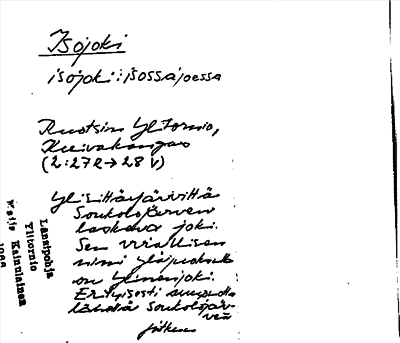 Isojoki
isojoki : isossajoessa
Ruotsin Ylitornio,
Kuivakangas
(2:27 R → 28 V)
Ylisittäjärvittä
Soukolojärveen
laskeva joki.
Sen virallinen
nimi yläjuoksulla
on Ylinenjoki.
Erityisesti
lähellä Soukolojär-
veä
jatkuu
Länsipohja
Ylitornio
Maija Kainulainen
1966